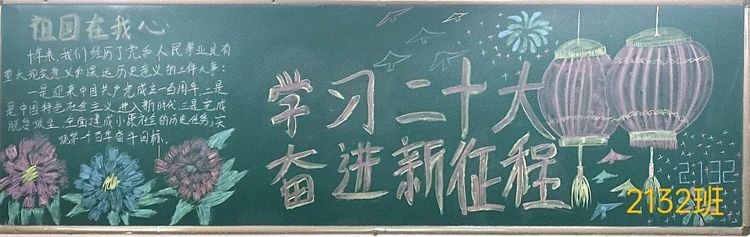 祖国在我心
十年来,我们经历了党和人民事业具有
重大现实意义和深远历史意义的三件大事:
一是迎来中国共产党成立一百周年,二是
是中国特色社会主义进入新时代,三是完成
脱贫攻坚、全面建成小康社会的历史任务,实
现第一个百年奋斗目标.
学习二十大
奋进新征程
2132
2132班